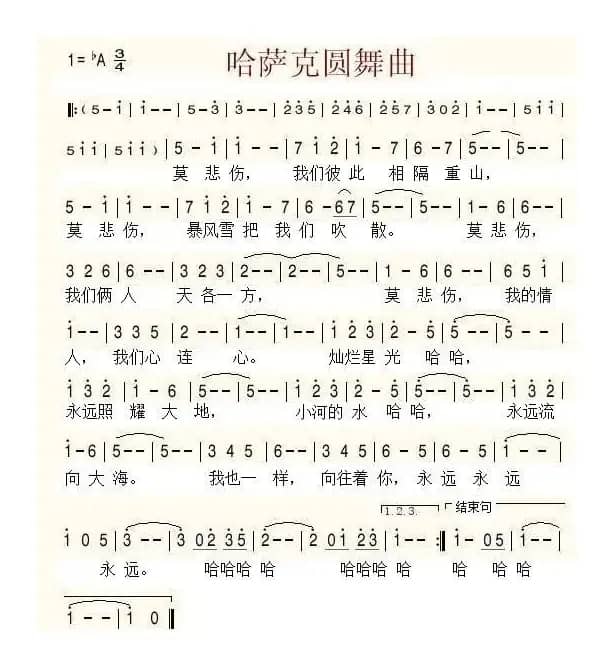 1=♭A 3/4 哈萨克圆舞曲
‖:(5-i|i--|5-3|3--|235|246|257|302|i--|5ii|
5ii|5ii)|5-i|i--|7i2|i-7|6-7|5--|5--|
莫悲伤， 我们彼此 相隔重山，
5-i|i--|7i2|i-7|6-67|5--|5--|1-6|6--|
莫悲伤， 暴风雪把我们吹散。 莫悲伤，
326|6--|323|2--|2--|5--|1-6|6--|65i|
我们俩人 天各一方， 莫悲伤，我的情
i--|335|2--|1--|1--|i23|2-5|5--|5--|
人，我们心连 心。 灿烂星光 哈哈，
i32|i-6|5--|5--|i23|2-5|5--|5--|i32|
永远照耀大地， 小河的水哈哈， 永远流
i-6|5--|5--|345|6--|345|6-5|6-5|i--|
向大海。 我也一样，向往着你，永远永远
1.2.3. 结束句
i05|3--|3 02 35|2--|2 0i 23|i--:‖i-05|i--|
永远。 哈哈哈哈 哈哈哈哈 哈 哈哈
i--|i0‖